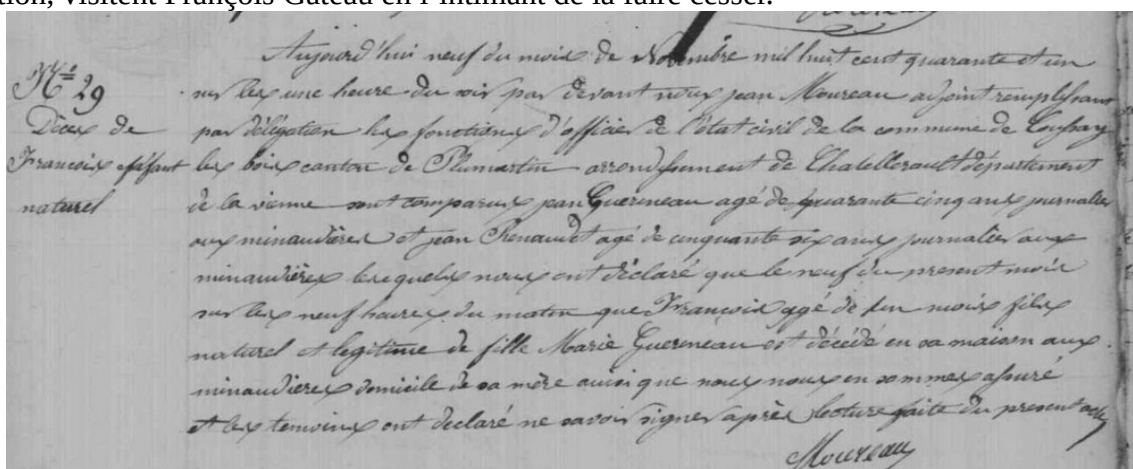 tion, visitent François Gateau en l'intimant de la faire cesser.
Aujourd'hui neuf du mois de Novembre mil huit cent quarante et un
N° 29
sur les une heure du soir par devant nous jean Moureau adjoint remplissant
Décès de
par délégation les fonctions d'officier de l'état civil de la commune de Coussay
François enfant
les bois canton de Plumartin arrondissement de Chatellerault département
naturel
de la vienne sont comparus jean Guerineau agé de quarante cinq ans journalier
aux minaudières et jean Renaudet agé de cinquante six ans journalier aux
minaudières lesquels nous ont déclaré que le neuf du present mois
sur les neuf heures du matin que François agé de un mois fils
naturel et legitime de fille Marie Guerineau est décédé en sa maison aux
minaudieres domicile de sa mère ainsi que nous nous en sommes assuré
et les temoins ont declaré ne savoir signer après lecture faite du present acte
Moureau